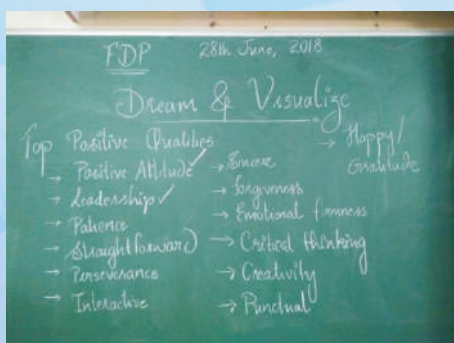 FDP 28th June, 2018
Dream & Visualize
Top Positive Qualities
→ Positive Attitude ✓
→ Leadership ✓
→ Patience
→ Straightforward
→ Perseverance
→ Interactive
→ Sincere
→ Forgiveness
→ Emotional firmness
→ Critical thinking
→ Creativity
→ Punctual
→ Happy/
Gratitude